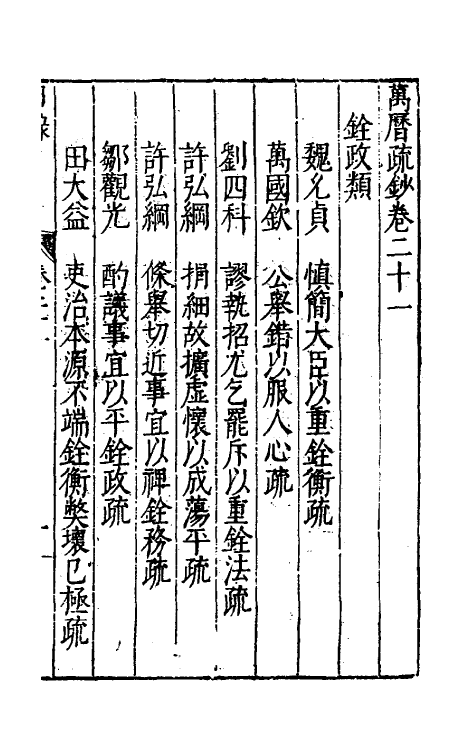 萬曆疏鈔卷二十一
銓政類
魏允貞 慎簡大臣以重銓衡疏
萬國欽 公舉錯以服人心疏
劉四科 謬執招尤乞罷斥以重銓法疏
許弘綱 捐細故擴虛懷以成蕩平疏
許弘綱 條舉切近事宜以裨銓務疏
鄒觀光 酌議事宜以平銓政疏
田大益 吏治本源不端銓衡獘壞已極疏